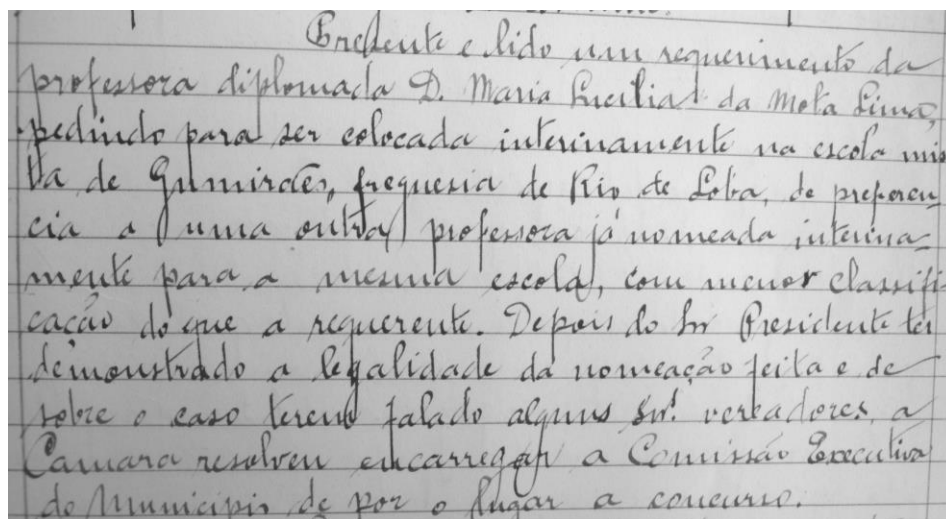 Presente e lido um requerimento da
professora diplomada D. Maria Lucilia da Mota Lima,
pedindo para ser colocada interinamente na escola mis-
ta de Gumirães, freguesia de Rio de Loba, de preferen-
cia a uma outra professora já nomeada interina-
mente para a mesma escola, com menor classifi-
cação do que a requerente. Depois do Snr Presidente ter
demonstrado a legalidade da nomeação feita e de
sobre o caso terem falado alguns Snrs. vereadores, a
Camara resolveu encarregar a Comissão Executiva
do Municipio de por o lugar a concurso.